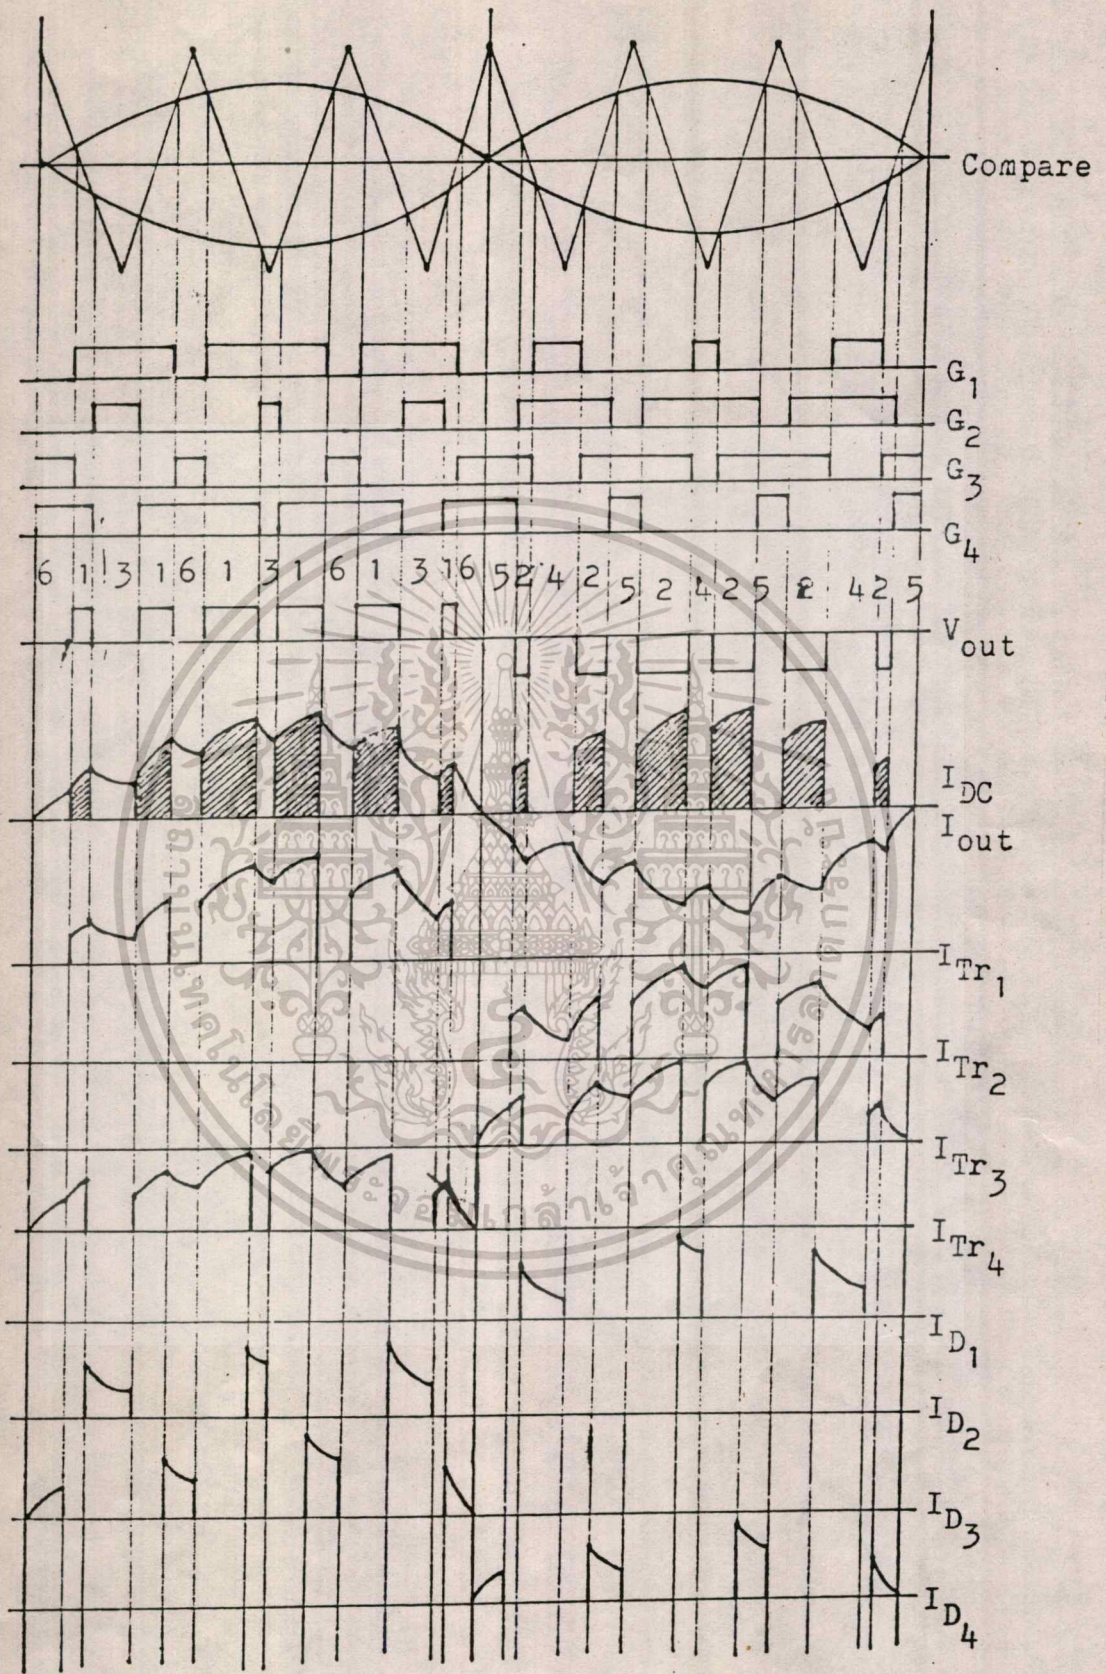 Compare
G1
G2
G3
G4
6 1 3 1 6 1 3 1 6 1 3 1 6 5 2 4 2 5 2 4 2 5 2 4 2 5
Vout
IDC
Iout
ITr1
ITr2
ITr3
ITr4
ID1
ID2
ID3
ID4